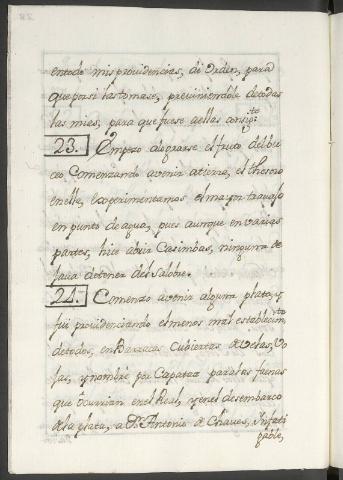 entodo mis providencias, di orden, para
que por si las tomase, previniendole de todas
las mias, para que fuese a ellas consig.te
23. Empezo alograrse el fruto del bu
ceo Comenzando avenir atierra, el thesoro
en ella, experimentamos el mayor travajo
en punto de agua, pues aunque en varias
partes, hice abrir Casimbas, ninguna de
java detener del Salobre.
24. Comenzo avenir alguna plata, y
fui providenciando el menos mal establecim.to
de todos, en Barracas Cubiertas de velas, u o
jas, y nombré por Capataz para las faenas
que ocurrian en el Real, y en el desembarco
de la plata, a Dn. Antonio de Chaves, Infati
gable,